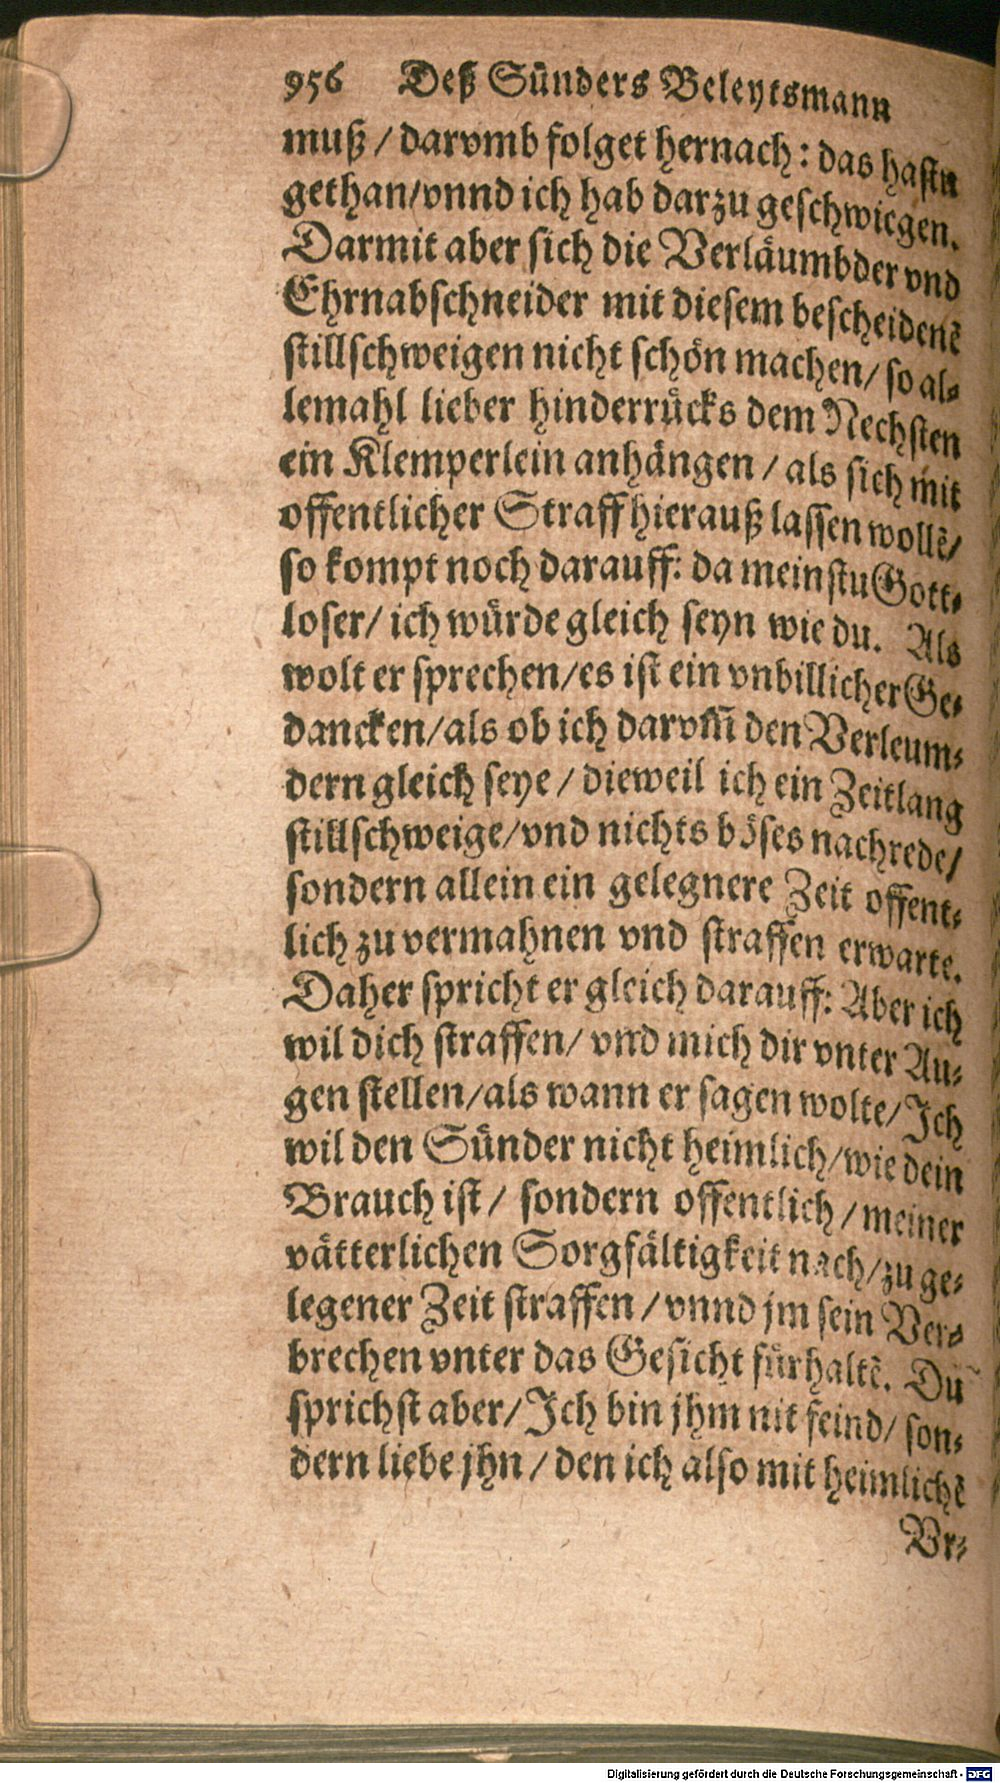 956 Deß Sünders Beleytsmann
muß / darvmb folget hernach: das hastu
gethan/vnnd ich hab darzu geschwiegen.
Darmit aber sich die Verläumbder vnd
Ehrnabschneider mit diesem bescheidenẽ
stillschweigen nicht schön machen/ so al-
lemahl lieber hinderrücks dem Nechsten
ein Klemperlein anhängen / als sich mit
offentlicher Straff hierauß lassen wollẽ/
so kompt noch darauff: da meinstu Gott-
loser/ ich würde gleich seyn wie du. Als
wolt er sprechen/es ist ein vnbillicher Ge-
dancken/als ob ich darvm̃ den Verleum-
dern gleich seye / dieweil ich ein Zeitlang
stillschweige/vnd nichts böses nachrede/
sondern allein ein gelegnere Zeit offent-
lich zu vermahnen vnd straffen erwarte.
Daher spricht er gleich darauff: Aber ich
wil dich straffen/ vnd mich dir vnter Au-
gen stellen/als wann er sagen wolte/ Ich
wil den Sünder nicht heimlich/wie dein
Brauch ist / sondern offentlich / meiner
vätterlichen Sorgfältigkeit nach/zu ge-
legener Zeit straffen / vnnd jm sein Ver-
brechen vnter das Gesicht fürhaltẽ. Du
sprichst aber/ Ich bin jhm nit feind/ son-
dern liebe jhn / den ich also mit heimlichẽ
Vr-
Digitalisierung gefördert durch die Deutsche Forschungsgemeinschaft - DFG